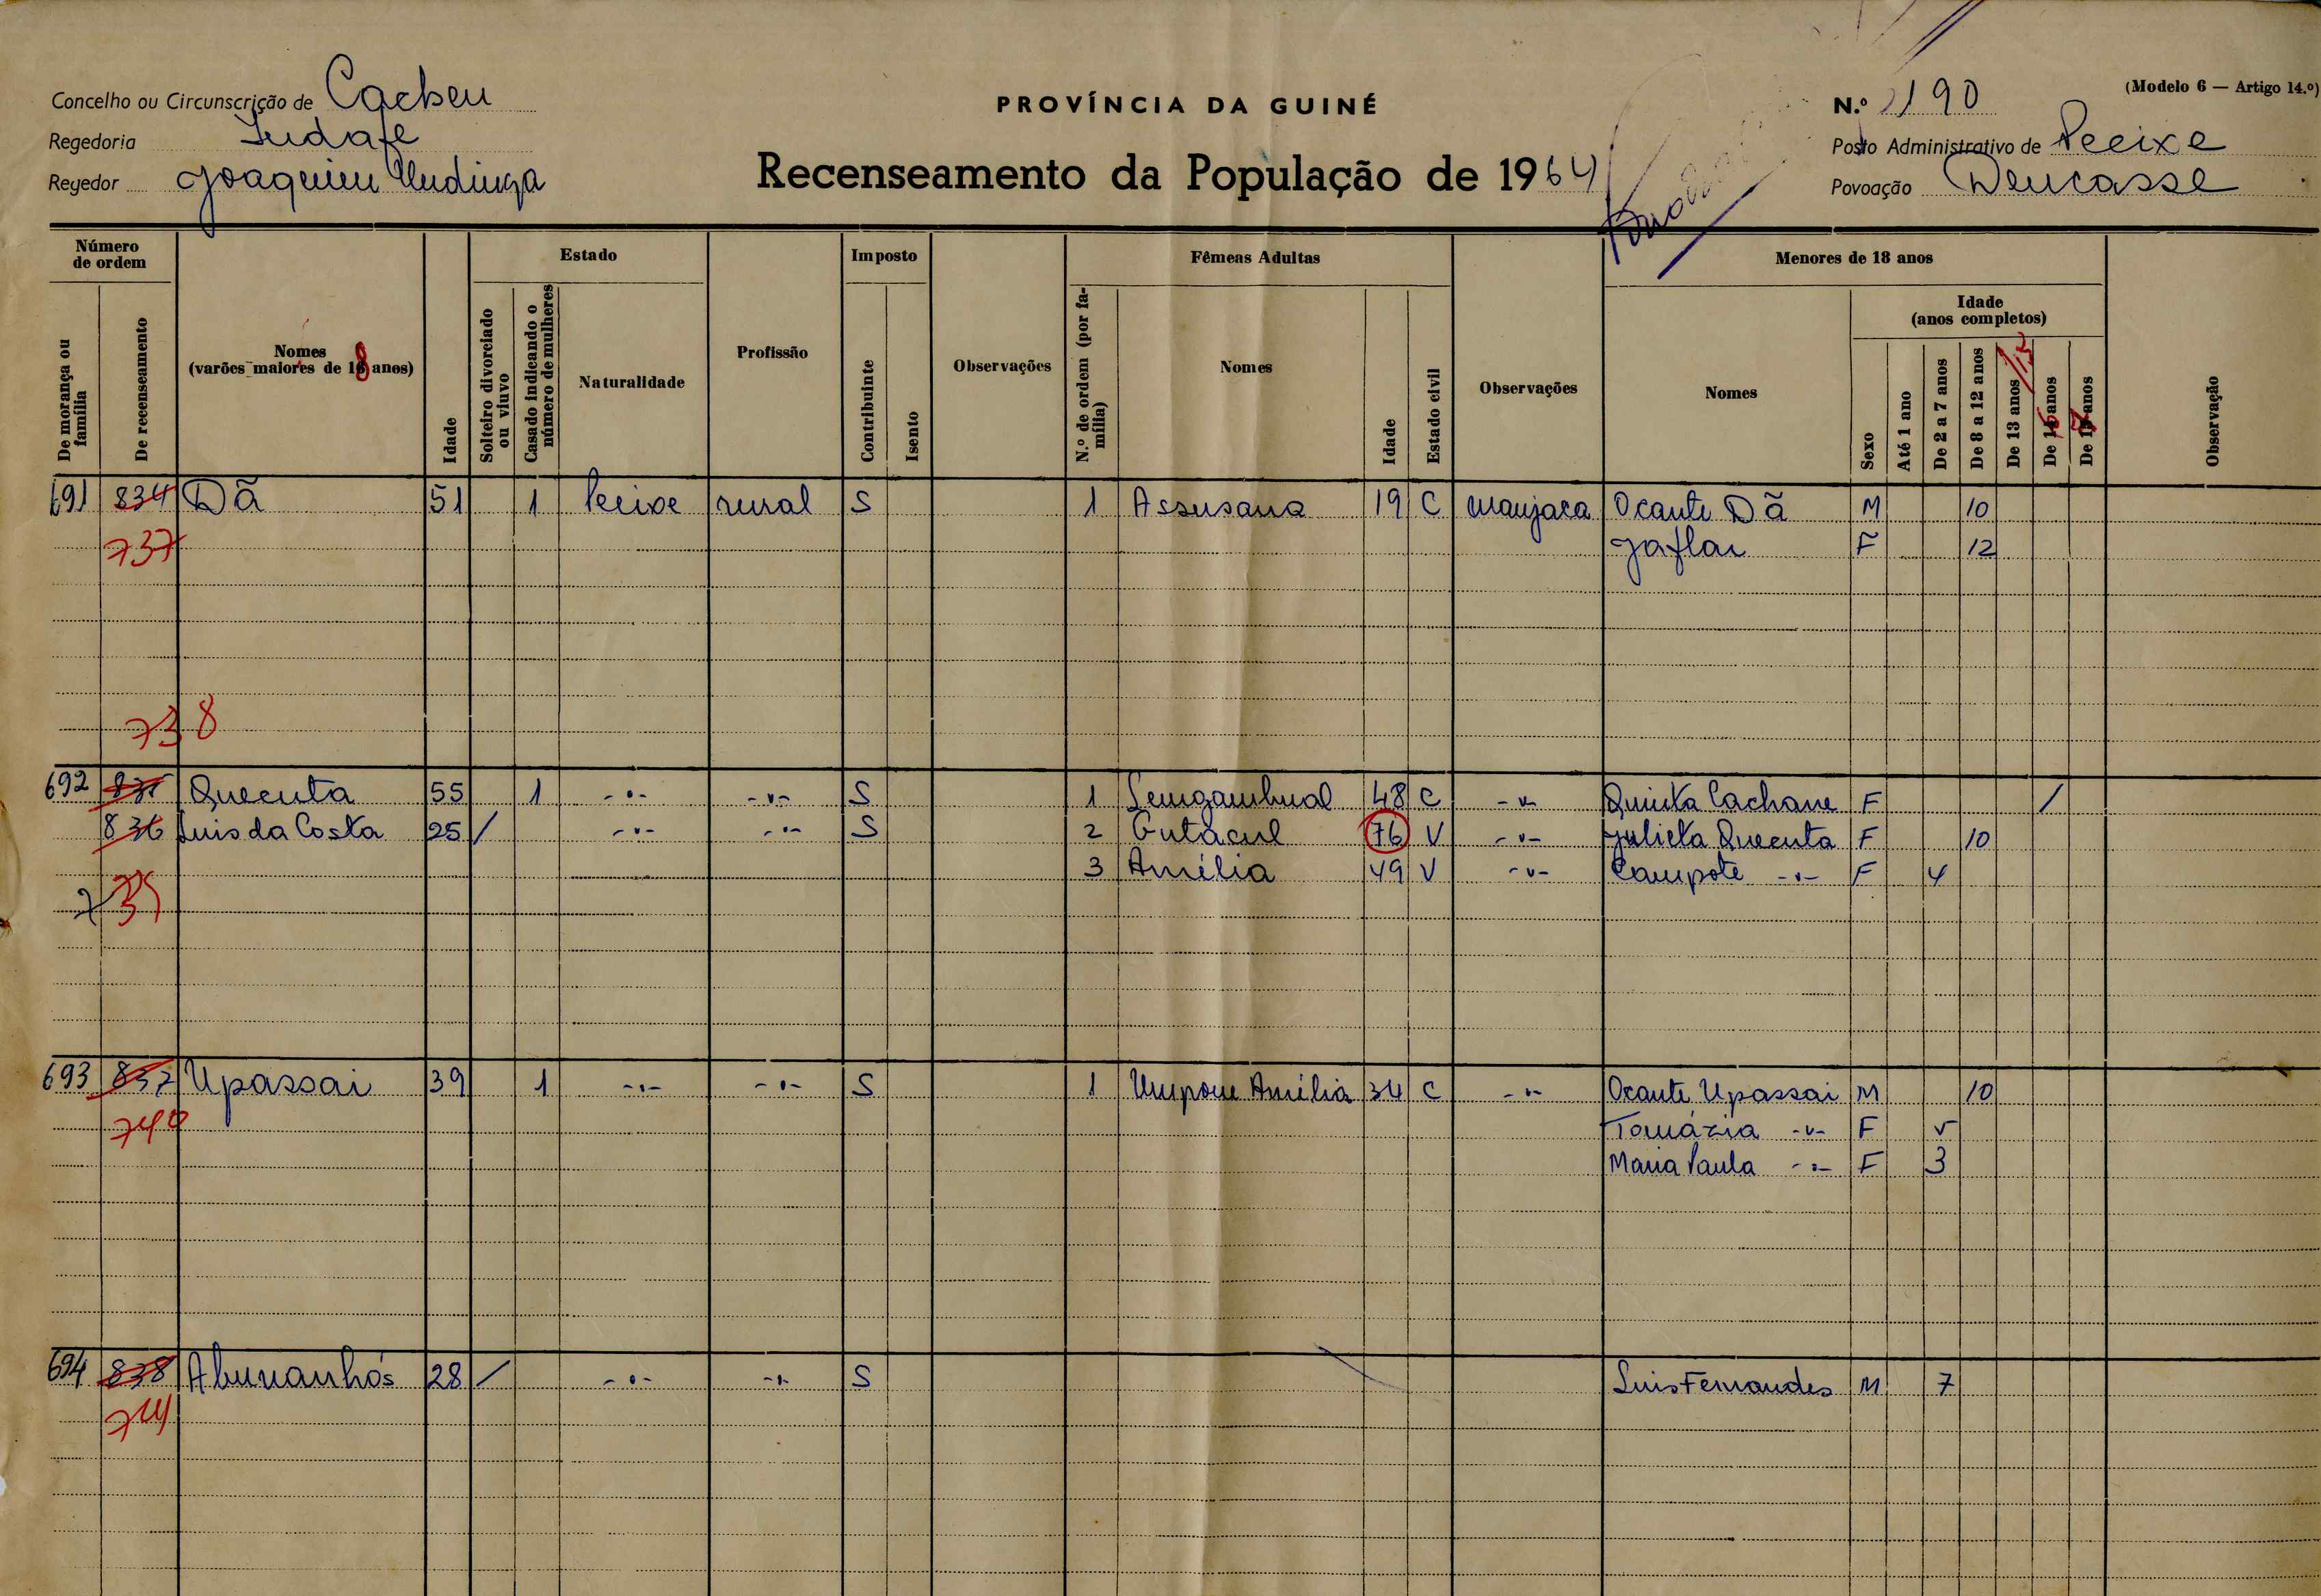 Concelho ou Circunscrição de Cacheu
PROVÍNCIA DA GUINÉ
N.º 190
(Modelo 6 — Artigo 14.º)
Regedoria
Posto Administrativo de Pecixe
Regedor Joaquim
Recenseamento da População de 1964
Povoação
Número de ordem
Estado
Imposto
Fêmeas Adultas
Menores de 18 anos
De morança ou família
De recenseamento
Nomes (varões maiores de 18 anos)
Idade
Solteiro divorciado ou viuvo
Casado indicando o número de mulheres
Naturalidade
Profissão
Contribuinte
Isento
Observações
N.º de ordem (por família)
Nomes
Idade
Estado civil
Observações
Nomes
Sexo
Idade (anos completos)
Até 1 ano
De 2 a 7 anos
De 8 a 12 anos
De 13 anos
anos
anos
Observação
691 834 Dã 51 1 Pecixe rural S 1 Assusana 19 C manjaca Ocante Dã M 10
737 Jaflan F 12
738
692 835 Quecuta 55 1 -"- -"- S 1 48 C -"- Quinta Cachane F /
836 Luis da Costa 25 / -"- -"- S 2 76 V -"- Julieta Quecuta F 10
3 Amélia 49 V -"- Campote -"- F 4
739
693 837 Upassai 39 1 -"- -"- S 1 Umpone Amélia 34 C -"- Ocante Upassai M 10
740 Tomázia -"- F 5
Maria Paula -"- F 3
694 838 28 / -"- -"- S Luis Fernandes M 7
741